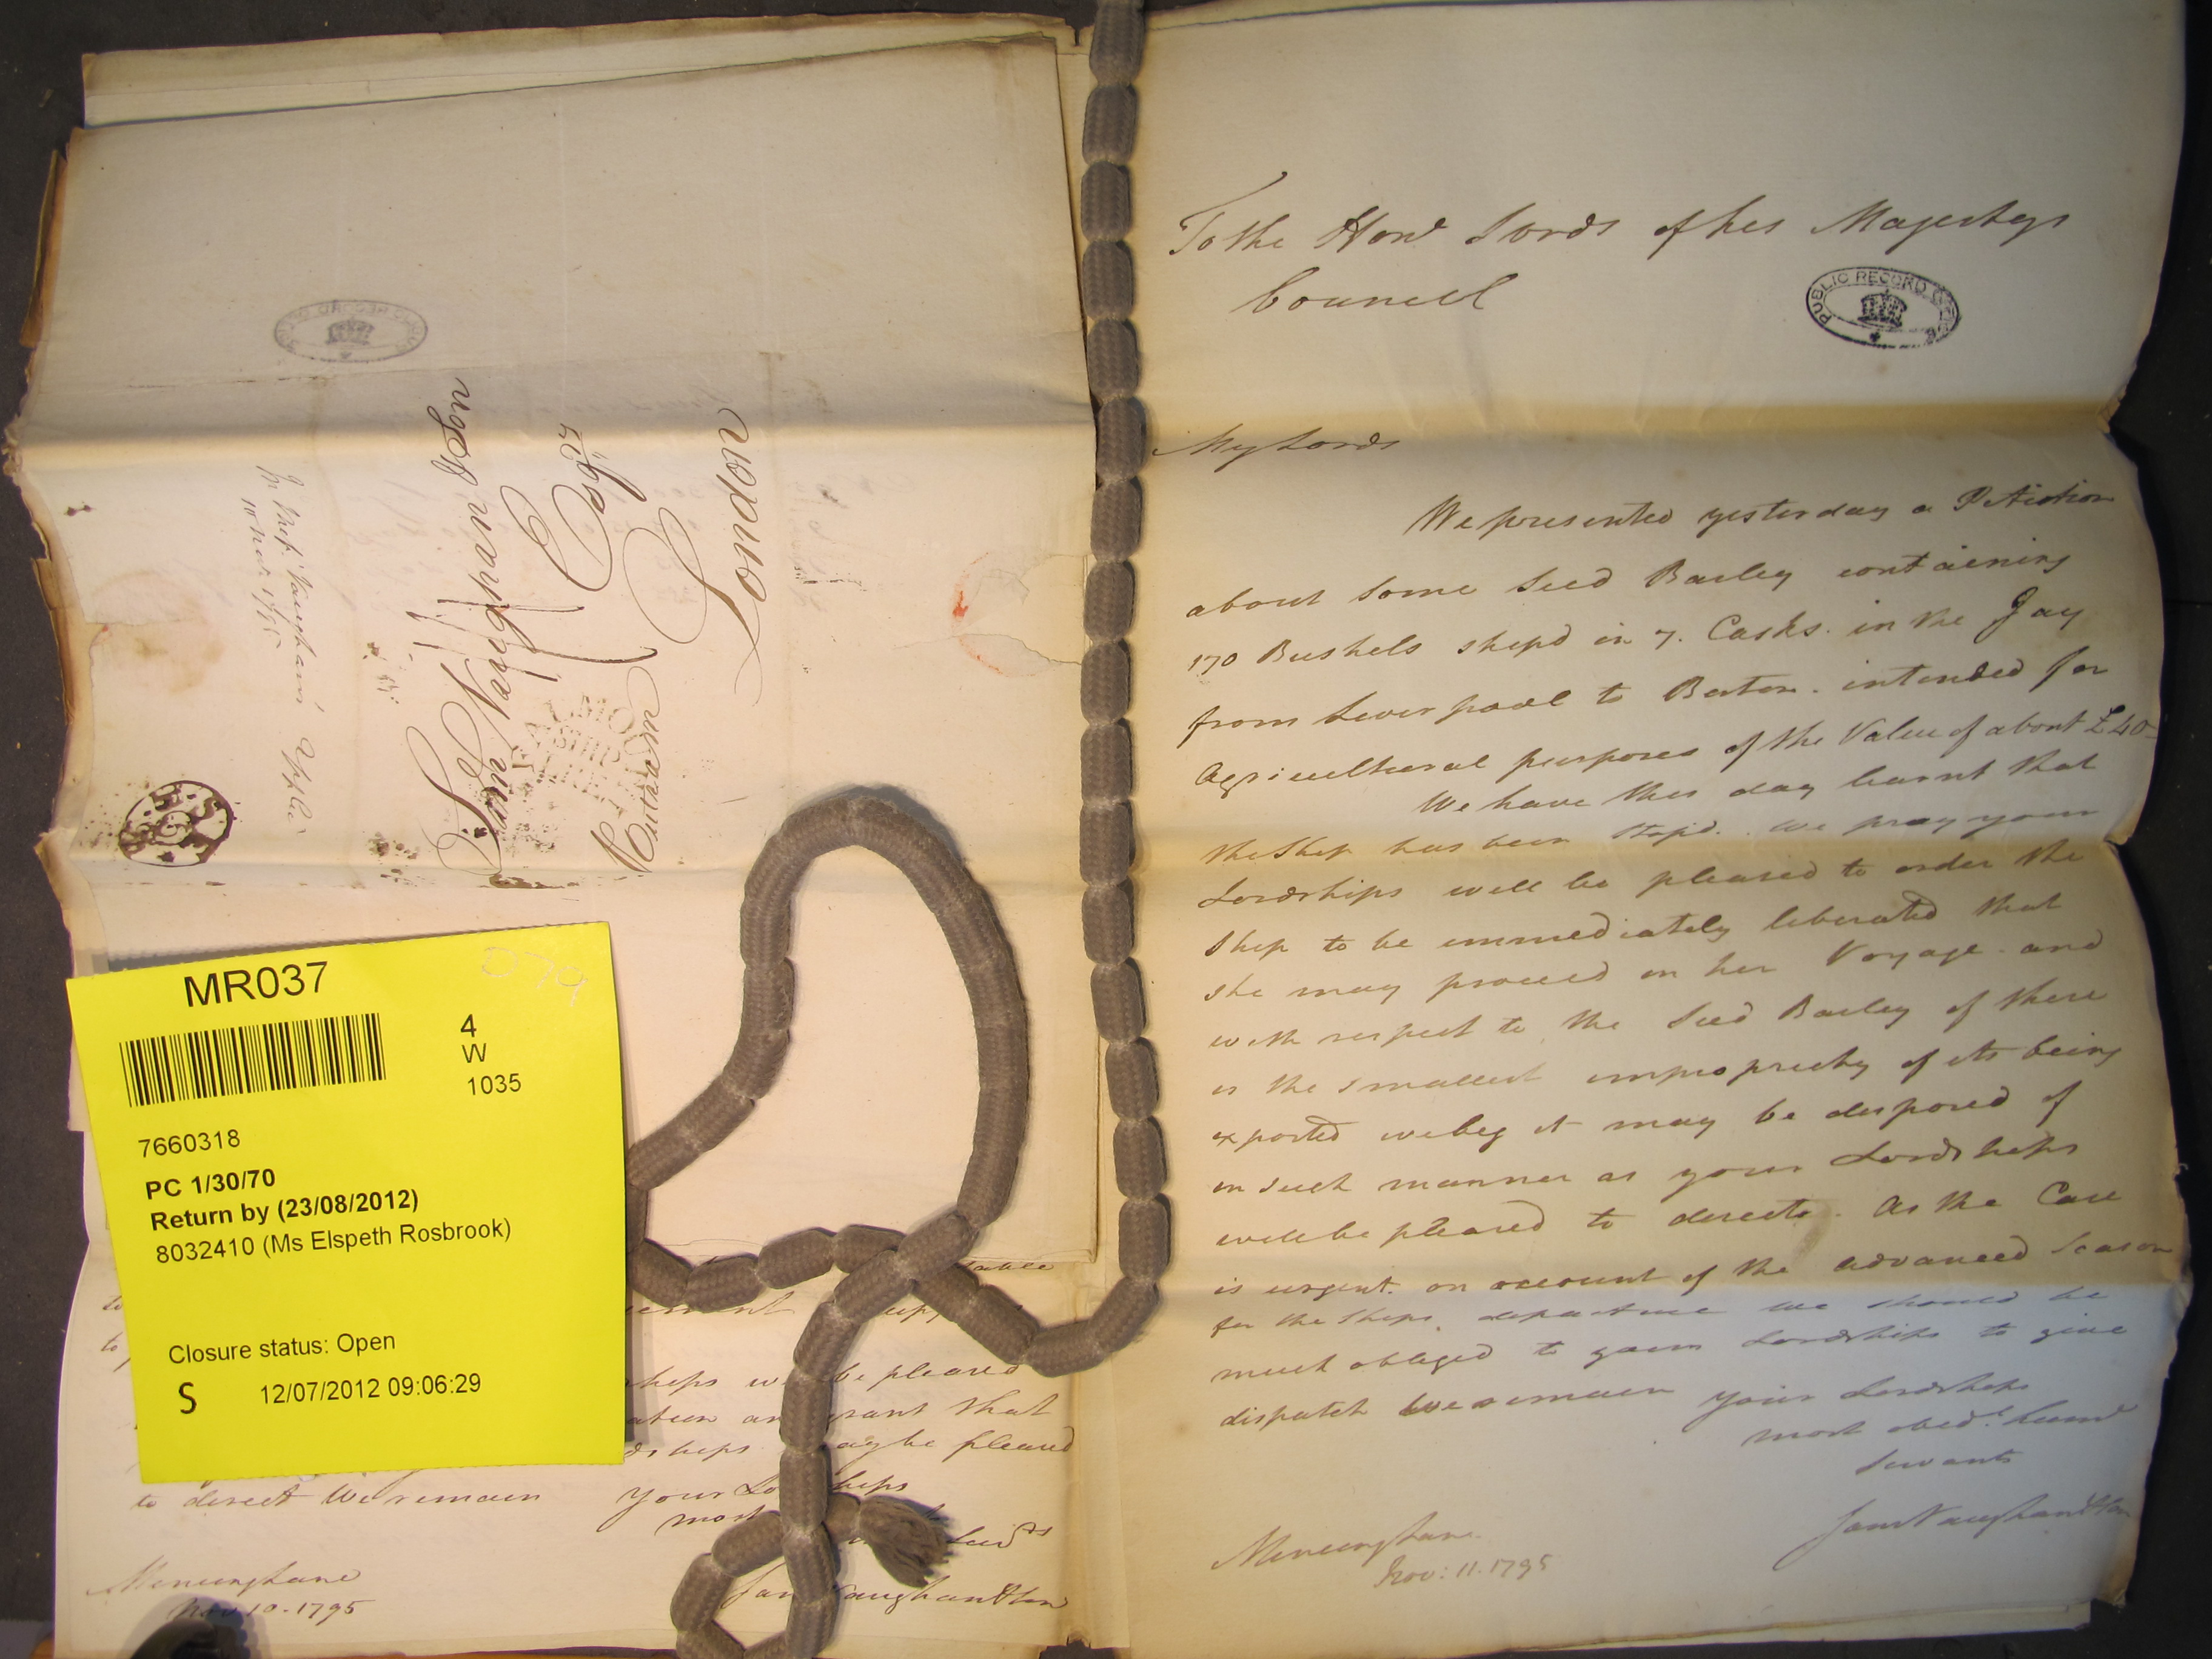 To the Honl Lords of his Majestys
Council
PUBLIC RECORD OFFICE
My Lords
We presented yesterday a Petition
about some Seed Barley containing
170 Bushels shipd in 7. Casks. in the Jay
from Liverpool to Boston. intended for
Agricultural purposes of the Value of about £40-
We have this day learnt that
the Ship has been stopd. we pray your
Lordships will be pleased to order the
Ship to be immediately liberated that
she may proceed on her Voyage. and
with respect to the Seed Barley if there
is the smallest impropriety of its being
exported we beg it may be disposed of
in such manner as your Lordships
will be pleased to direct. As the Case
is urgent. on account of the advanced Season
for the Ships. departure we should be
much obliged to your Lordships to give
dispatch We remain your Lordships
most obedt. huml
Servants
Saml Vaughan & Son
Mincing Lane
Nov: 11. 1795
Saml Vaughan & Son
Esqrs
London
10 Novr. 1795
MR037
079
4
W
1035
7660318
PC 1/30/70
Return by (23/08/2012)
8032410 (Ms Elspeth Rosbrook)
Closure status: Open
S 12/07/2012 09:06:29
be pleased
grant that
may be pleased
to direct We remain your Lordships
most
Mincing Lane
Nov 10 - 1795
Saml Vaughan & Son